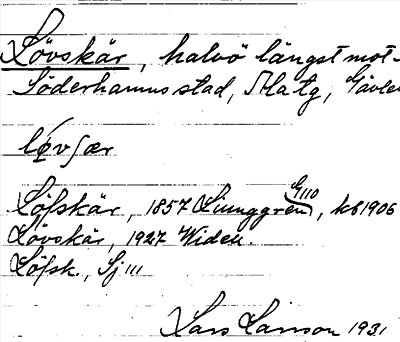 Lövskär, halvö längst mot
Söderhamns stad, Matg, Gävle
løvʃær
G110
Löfskär, 1857 Ljunggren, kb 1906
Lövskär, 1927 Widén.
Löfsk., Sj 111
Lars Larsson 1931